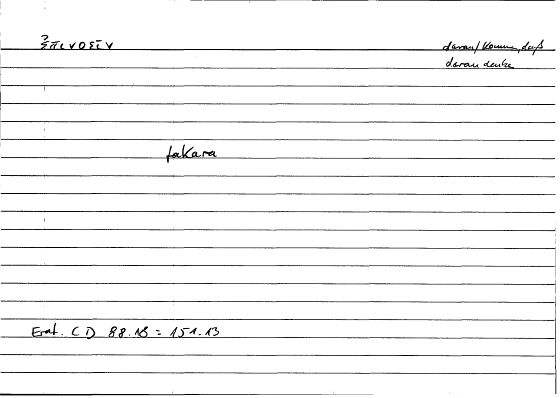 ἐπινοεῖν
darauf kommen, daß
daran denken
fakara
Erat. CD 88.18 = 151.13